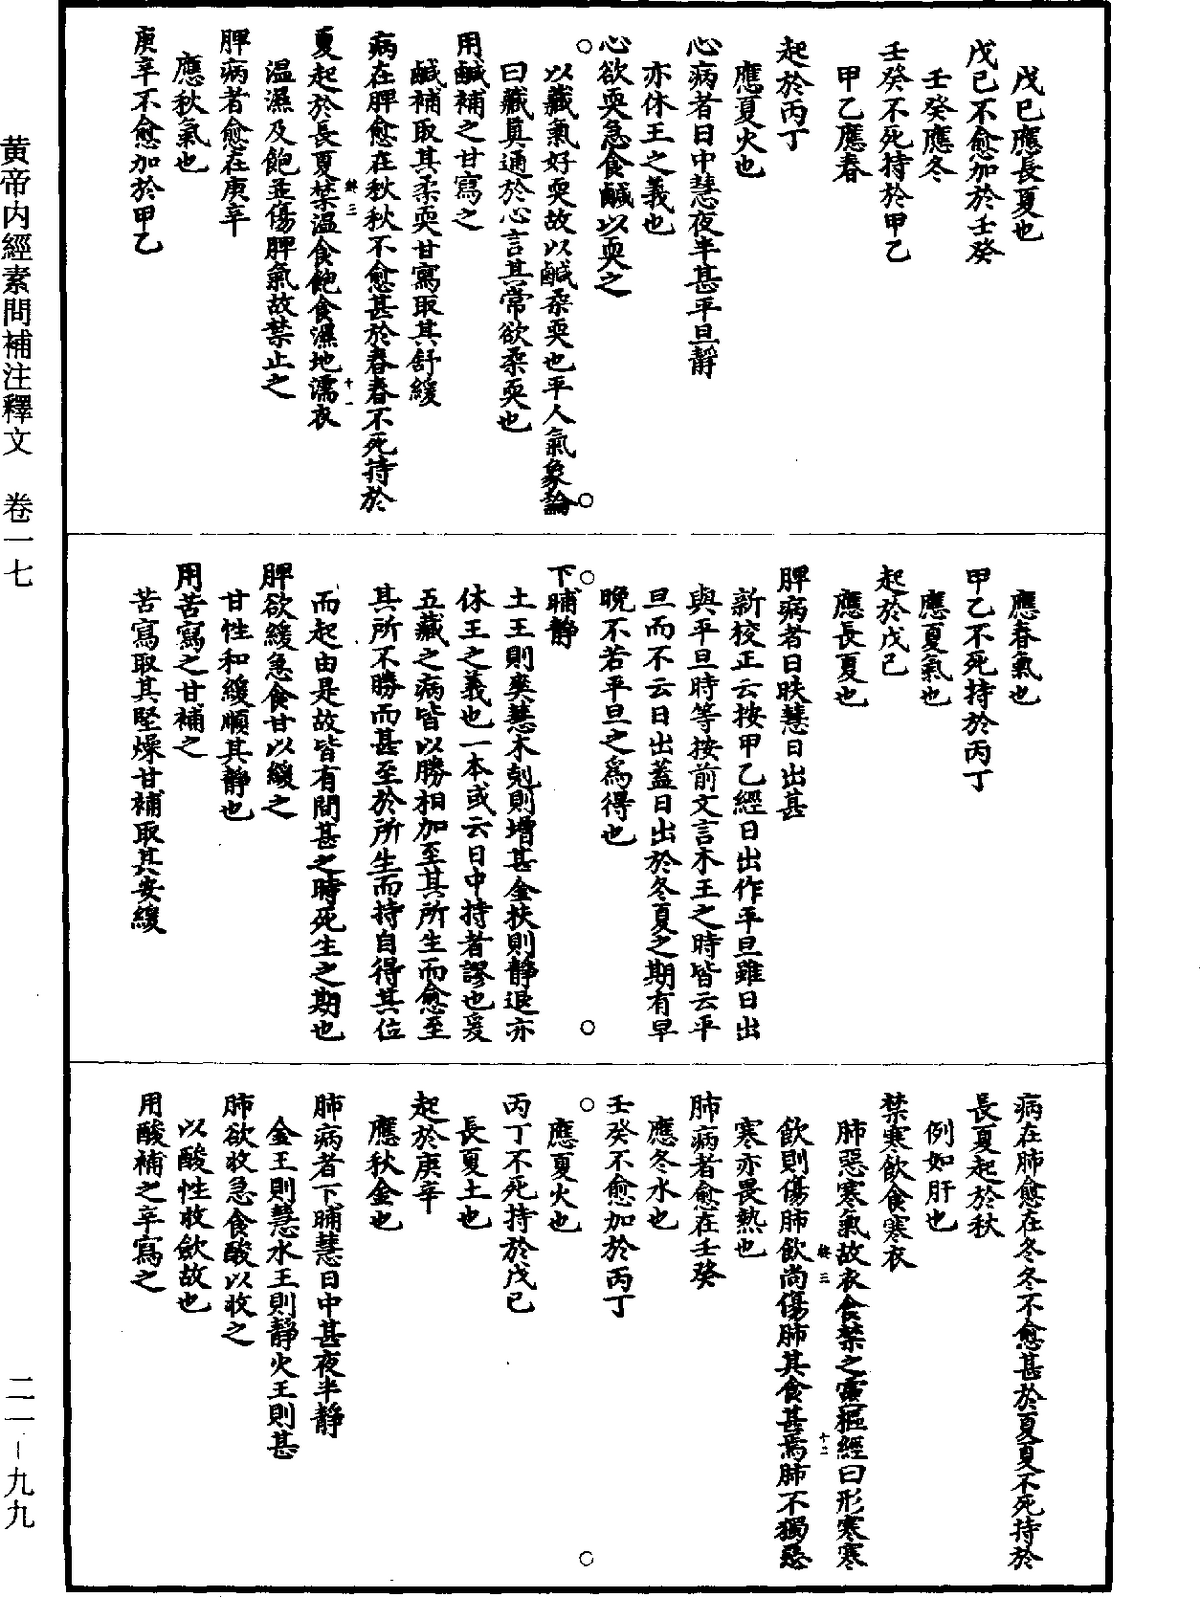 戊己應長夏也
戊己不愈加於壬癸
壬癸應冬
壬癸不死持於甲乙
甲乙應春
起於丙丁
應夏火也
心病者日中慧夜半甚平旦靜
亦休王之義也
心欲耎急食鹹以耎之
以藏氣好耎故以鹹柔耎也平人氣象論
曰藏真通於心言其常欲柔耎也
用鹹補之甘寫之
鹹補取其柔耎甘寫取其舒緩
病在脾愈在秋秋不愈甚於春春不死持於
夏起於長夏禁溫食飽食濕地濡衣
溫濕及飽並傷脾氣故禁止之
脾病者愈在庚辛
應秋氣也
庚辛不愈加於甲乙
應春氣也
甲乙不死持於丙丁
應夏氣也
起於戊己
應長夏也
脾病者日昳慧日出甚
新校正云按甲乙經日出作平旦雖日出
與平旦時等按前文言木王之時皆云平
旦而不云日出蓋日出於冬夏之期有早
晚不若平旦之為得也
下晡靜
土王則爽慧木剋則增甚金扶則靜退亦
休王之義也一本或云日中持者謬也爰
五藏之病皆以勝相加至其所生而愈至
其所不勝而甚至於所生而持自得其位
而起由是故皆有間甚之時死生之期也
脾欲緩急食甘以緩之
甘性和緩順其靜也
用苦寫之甘補之
苦寫取其堅燥甘補取其安緩
病在肺愈在冬冬不愈甚於夏夏不死持於
長夏起於秋
例如肝也
禁寒飲食寒衣
肺惡寒氣故衣食禁之靈樞經曰形寒寒
飲則傷肺飲尚傷肺其食甚焉肺不獨惡
寒亦畏熱也
肺病者愈在壬癸
應冬水也
壬癸不愈加於丙丁
應夏火也
丙丁不死持於戊己
長夏土也
起於庚辛
應秋金也
肺病者下晡慧日中甚夜半靜
金王則慧水王則靜火王則甚
肺欲收急食酸以收之
以酸性收斂故也
用酸補之辛寫之
黃帝內經素問補注釋文 卷一七
二一－九九